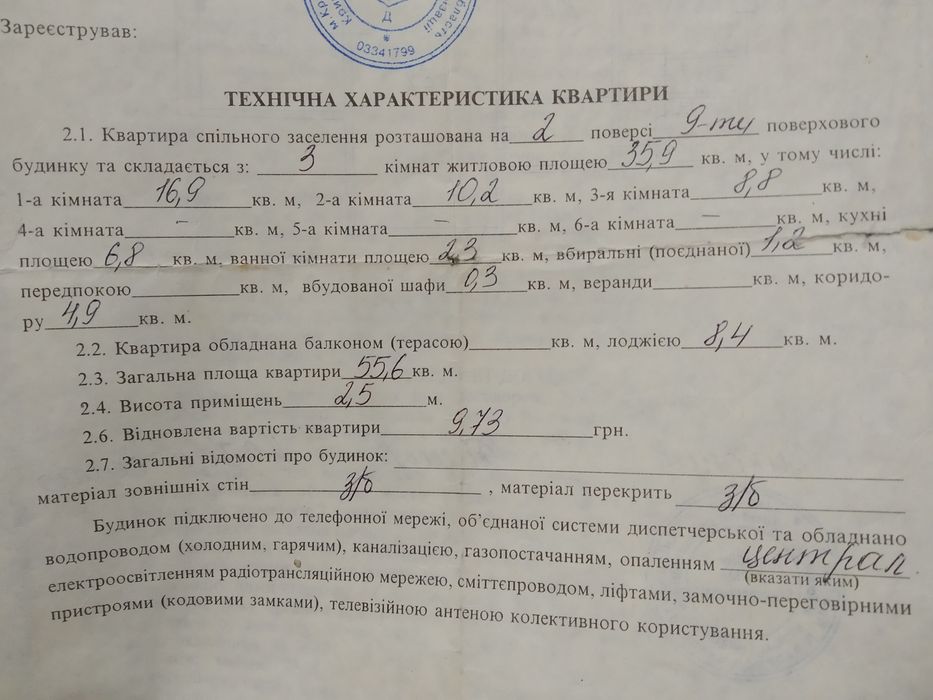 Зареєстрував:
03341799
ТЕХНІЧНА ХАРАКТЕРИСТИКА КВАРТИРИ
2.1. Квартира спільного заселення розташована на 2 поверсі 9-ти поверхового
будинку та складається з: 3 кімнат житловою площею 35,9 кв. м, у тому числі:
1-а кімната 16,9 кв. м, 2-а кімната 10,2 кв. м, 3-я кімната 8,8 кв. м,
4-а кімната — кв. м, 5-а кімната — кв. м, 6-а кімната — кв. м, кухні
площею 6,8 кв. м, ванної кімнати площею 2,3 кв. м, вбиральні (поєднаної) 1,2 кв. м,
передпокою кв. м, вбудованої шафи 0,3 кв. м, веранди кв. м, коридо-
ру 4,9 кв. м.
2.2. Квартира обладнана балконом (терасою) кв. м, лоджією 8,4 кв. м.
2.3. Загальна площа квартири 55,6 кв. м.
2.4. Висота приміщень 2,5 м.
2.6. Відновлена вартість квартири 9,73 грн.
2.7. Загальні відомості про будинок:
матеріал зовнішніх стін з/б , матеріал перекрить з/б
Будинок підключено до телефонної мережі, об’єднаної системи диспетчерської та обладнано
водопроводом (холодним, гарячим), каналізацією, газопостачанням, опаленням централ.
(вказати яким)
електроосвітленням радіотрансляційною мережею, сміттєпроводом, ліфтами, замочно-переговірними
пристроями (кодовими замками), телевізійною антеною колективного користування.